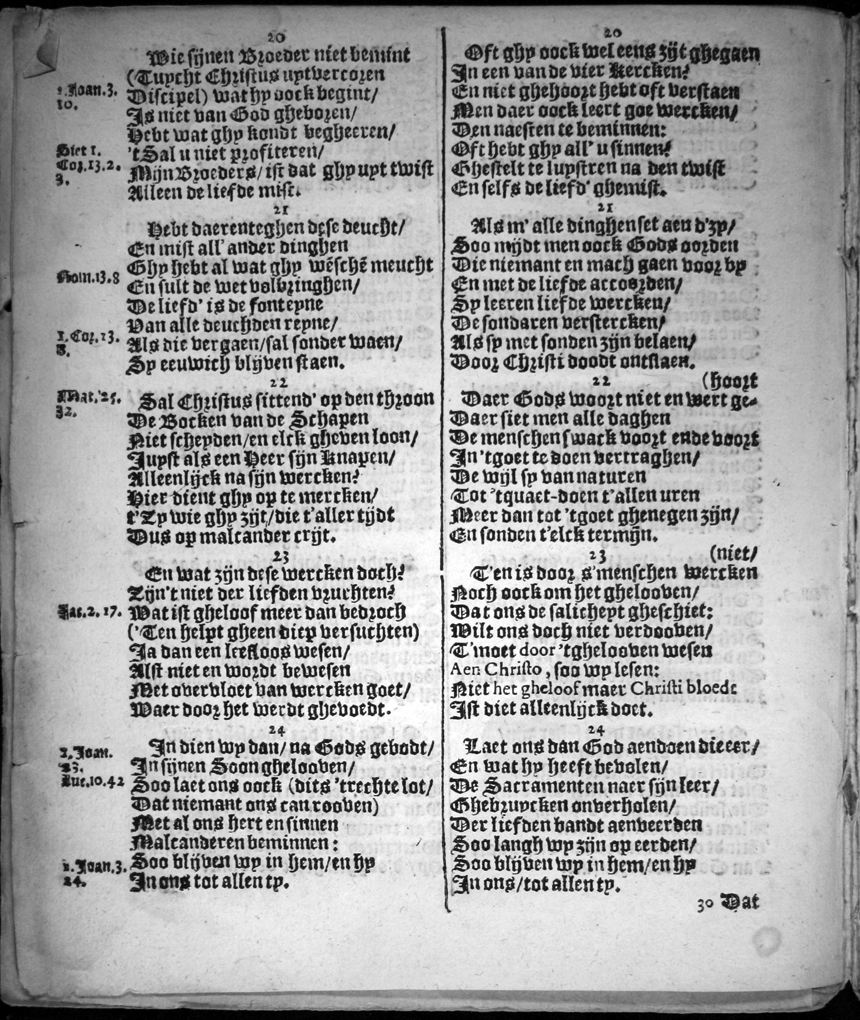 20
Wie sijnen Broeder niet bemint
(Tuycht Christus uytvercoren
1.Joan.3.
10.
Discipel) wat hy oock begint/
Is niet van God gheboren/
Hebt wat ghy kondt begheeren/
Siet 1.
Cor.13.2.
3.
'tSal u niet profiteren/
Mijn Broeders/ ist dat ghy uyt twist
Alleen de liefde mist.
21
Hebt daerenteghen dese deucht/
En mist all' ander dinghen
Ghy hebt al wat ghy wẽschẽ meucht
Rom.13.8
En sult de wet volbringhen/
De liefd' is de fonteyne
Van alle deuchden reyne/
1.Cor.13.
8.
Als die vergaen/sal sonder waen/
Sy eeuwich blijven staen.
22
Mat.'25.
32.
Sal Christus sittend' op den throon
De Bocken van de Schapen
Niet scheyden/en elck gheven loon/
Juyst als een Heer sijn knapen/
Alleenlijck na sijn wercken?
Hier dient ghy op te mercken/
t'Zy wie ghy zijt/die t'aller tijdt
Dus op malcander crijt.
23
En wat zijn dese wercken doch?
Zijn't niet der liefden vruchten?
Jac.2.17.
Wat ist gheloof meer dan bedroch
('Ten helpt gheen diep versuchten)
Ja dan een leefloos wesen/
Alst niet en wordt bewesen
Met overvloet van wercken goet/
Waer door het werdt ghevoedt.
24
1.Joan.
23.
In dien wy dan/ na Gods gebodt/
In sijnen Soon ghelooven/
Luc.10.42
Soo laet ons oock (dits 'trechte lot/
Dat niemant ons can rooven)
Met al ons hert en sinnen
Malcanderen beminnen:
1.Joan.3.
24.
Soo blijven wy in hem/en hy
In ons tot allen ty.
20
Oft ghy oock wel eens zijt ghegaen
In een van de vier Kercken?
En niet ghehoort hebt oft verstaen
Men daer oock leert goe wercken/
Den naesten te beminnen:
Oft hebt ghy all' u sinnen?
Ghestelt te luystren na den twist
En selfs de liefd' ghemist.
21
Als m' alle dinghen set aen d'zy/
Soo mijdt men oock Gods oorden
Die niemant en mach gaen voor by
En met de liefde accoorden/
Sy leeren liefde wercken/
De sondaren verstercken/
Als sy met sonden zijn belaen/
Door Christi doodt ontslaen.
22 (hoort
Daer Gods woort niet en wert ge-
Daer siet men alle daghen
De menschen swack voort ende voort
In 'tgoet te doen vertraghen/
De wijl sy van naturen
Tot 'tquaet-doen t'allen uren
Meer dan tot 'tgoet ghenegen zijn/
En sonden t'elck termijn.
23 (niet/
T'en is door s'menschen wercken
Noch oock om het ghelooven/
Dat ons de salicheyt gheschiet:
Wilt ons doch niet verdooven/
T'moet door 'tghelooven wesen
Aen Christo, soo wy lesen:
Niet het gheloof maer Christi bloedt
Ist diet alleenlijck doet.
24
Laet ons dan God aendoen die eer/
En wat hy heeft bevolen/
De Sacramenten naer sijn leer/
Ghebruycken onverholen/
Der liefden bandt aenveerden
Soo langh wy zijn op eerden/
Soo blijven wy in hem/en hy
In ons/tot allen ty.
30 Dat